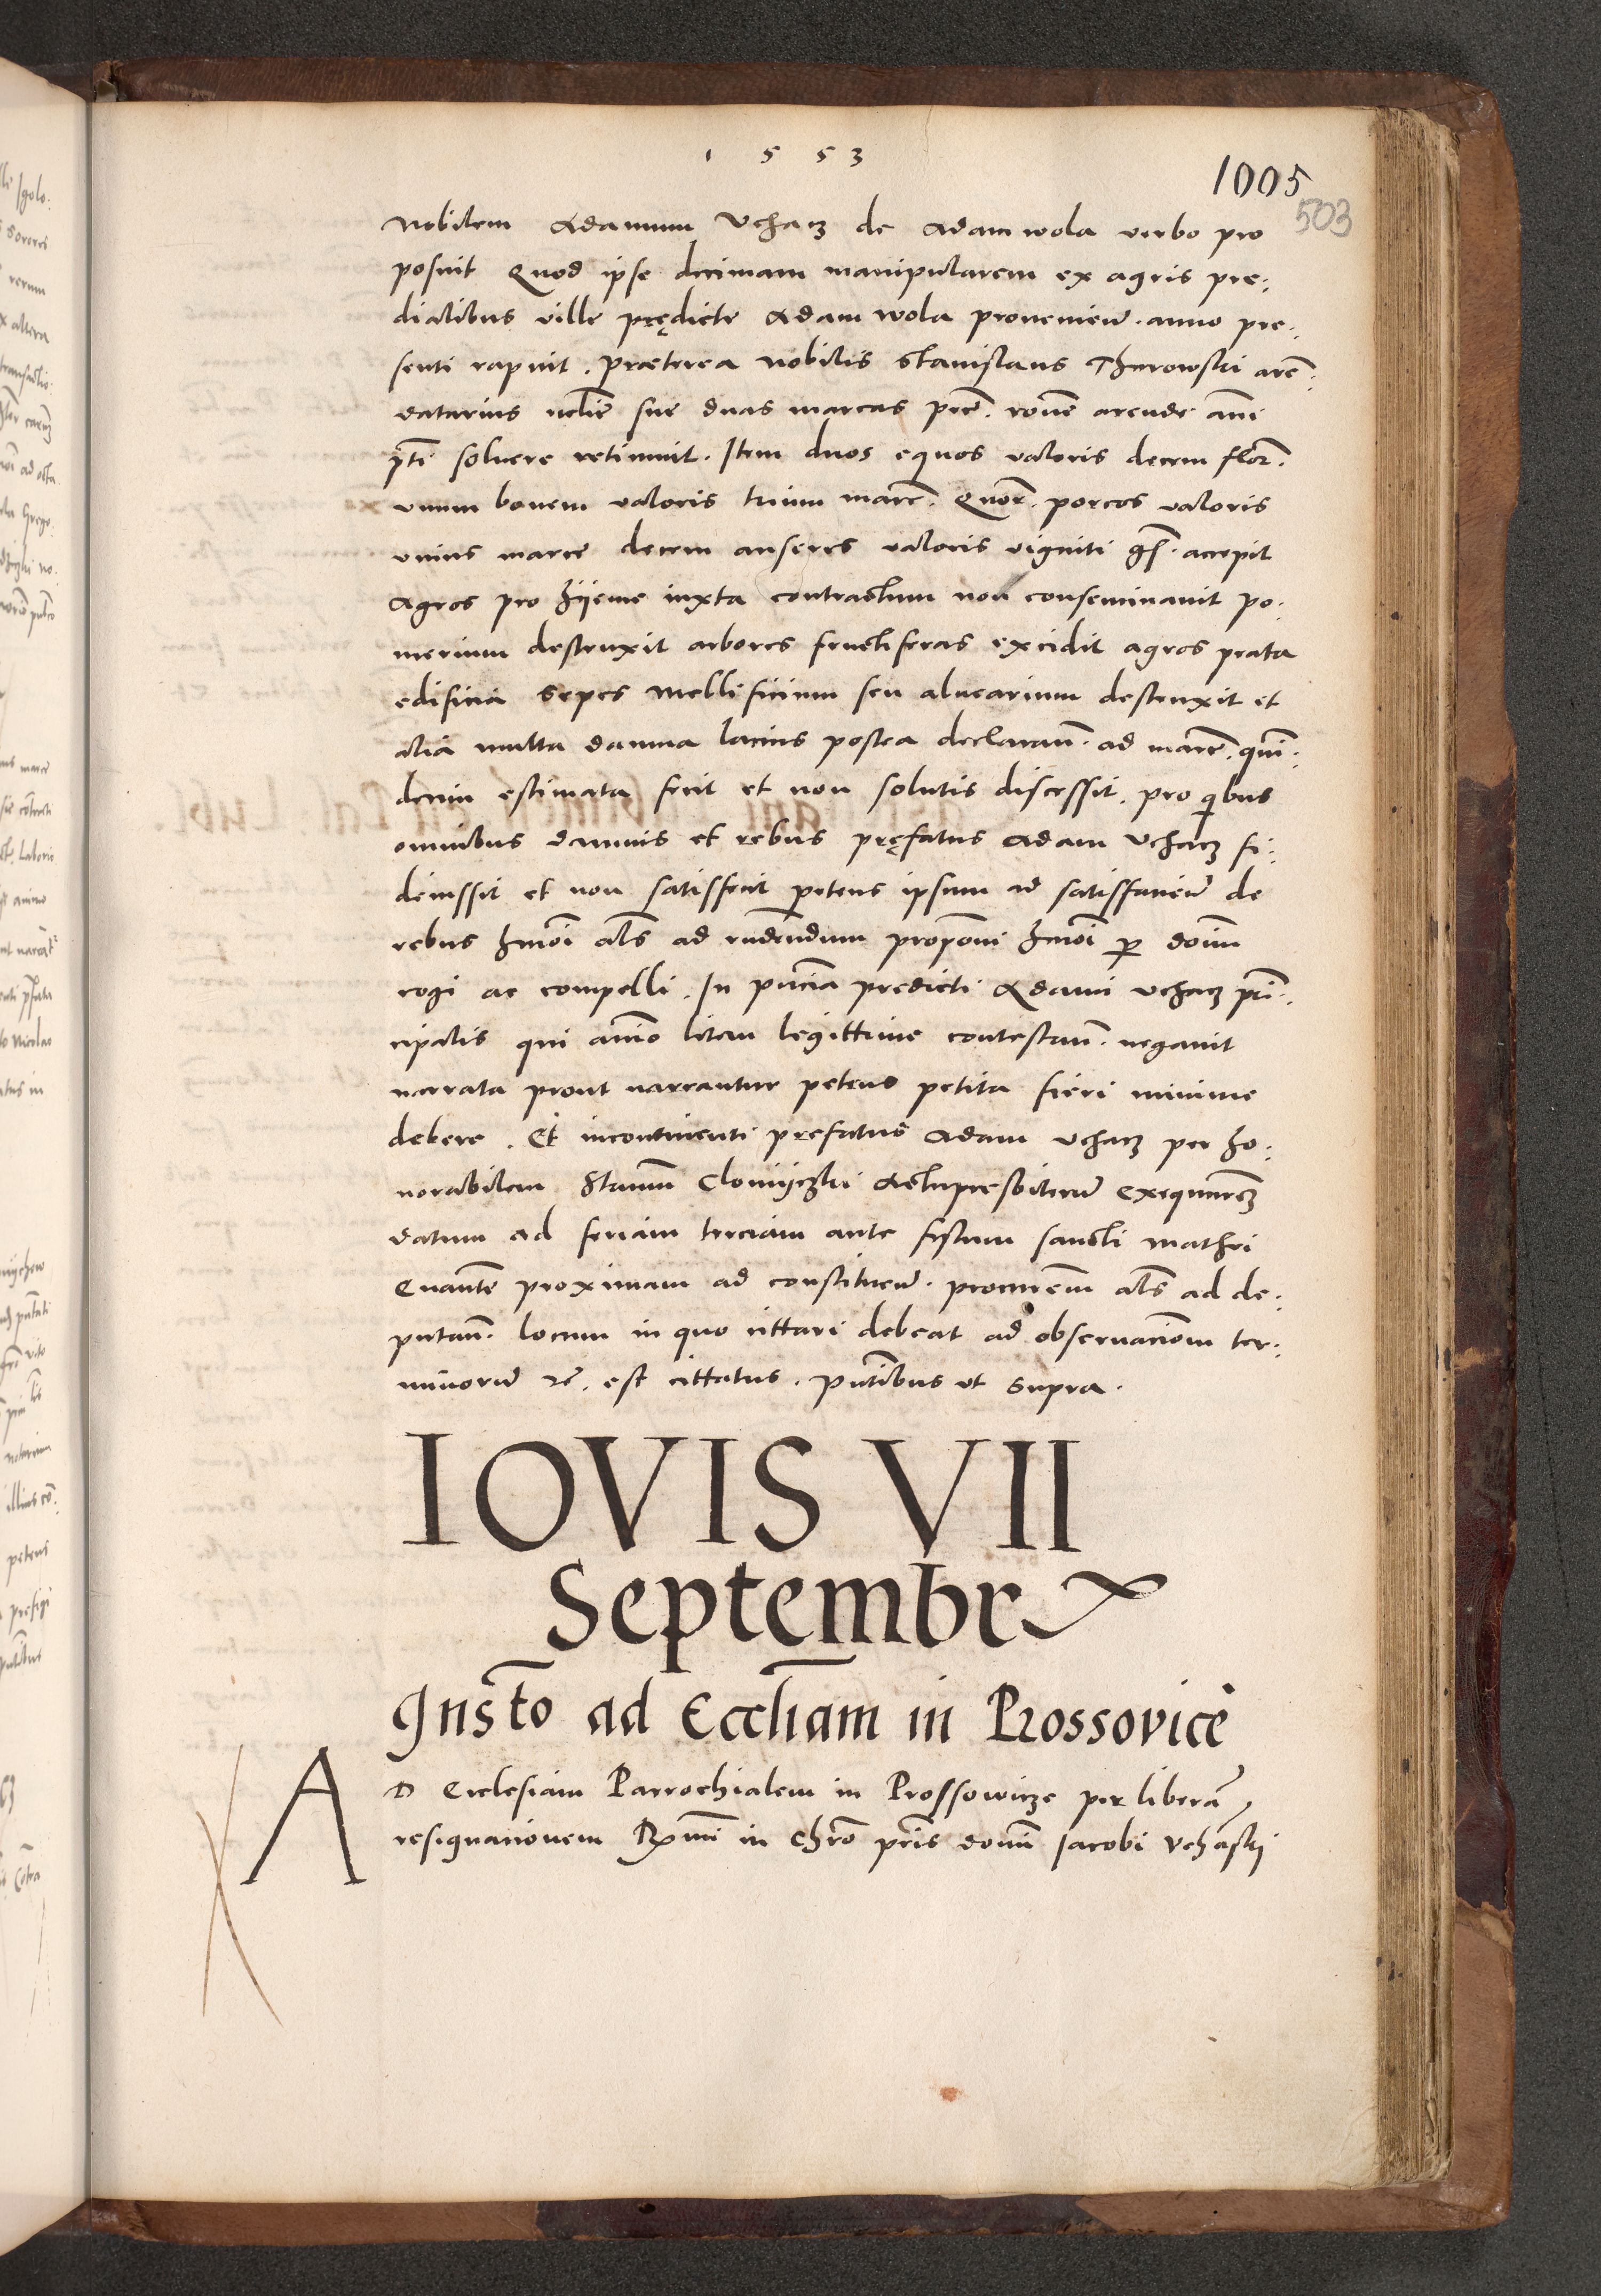 1 5 5 3
1005
503
Nobilem Adamum Uchacz de Adamwola verbo pro
posuit Quod ipse decimam manipularem ex agris pre:
dialibus ville prędicte Adam wola provenieñ. anno pre:
senti rapuit. Præterea Nobilis Stanislaus Thurowski arẽ:
datarius ucliẽ sue duas marcas pecẽ. rõne arende añi
pñti solvere retinuit. Item duos equos valoris decem flor̃.
unum bovem valoris trium marc̃. Quor̃. porcos valoris
unius marce decem anseres valoris viginti gſ. accepit
Agros pro hyeme iuxta contractum non conseminavit po:
merium destruxit arbores fructiferas excidit agros prata
edificia sepes mellificium seu alvearium destruxit et
alia multa damna lacius postea declarañ. ad marc̃. quĩ:
decim estimata fecit et non solutis discessit. pro qibus
omnibus damnis et rebus pręfatus Adam Uchacz fi:
deiussit et non satisfecit petens ipsum ad satisfacieñ de
rebus hmoĩ als̃ ad rñdendum proponi hmoĩ p doim̃
cogi ac compelli. In pñcia predicti Adami Uchacz prĩ:
cipalis qui añio litem legittime contestañ. negavit
narrata prout narrantur petens petita fieri minime
debere. Et incontinenti prefatus Adam Uchacz per ho:
norabilem Stanum̃ Clomiyczki Actupresbiterũ exequnrẽ
datum ad feriam terciam ante festum sancti Mathei
Evañte proximam ad constitueñ. procurẽm als̃ ad de:
putañ. locum in quo cittari debeat ad observacionem ter:
minorũ rẽ. est cittatus. pñtibus ut supra.
IOVIS VII
Septembr
Insto ad Eccliam in Prossovice
AD Ecclesiam Parrochialem in Prossowicze per liberã
resignacionem Rmi in Chro pris domi Jacobi Uchanski